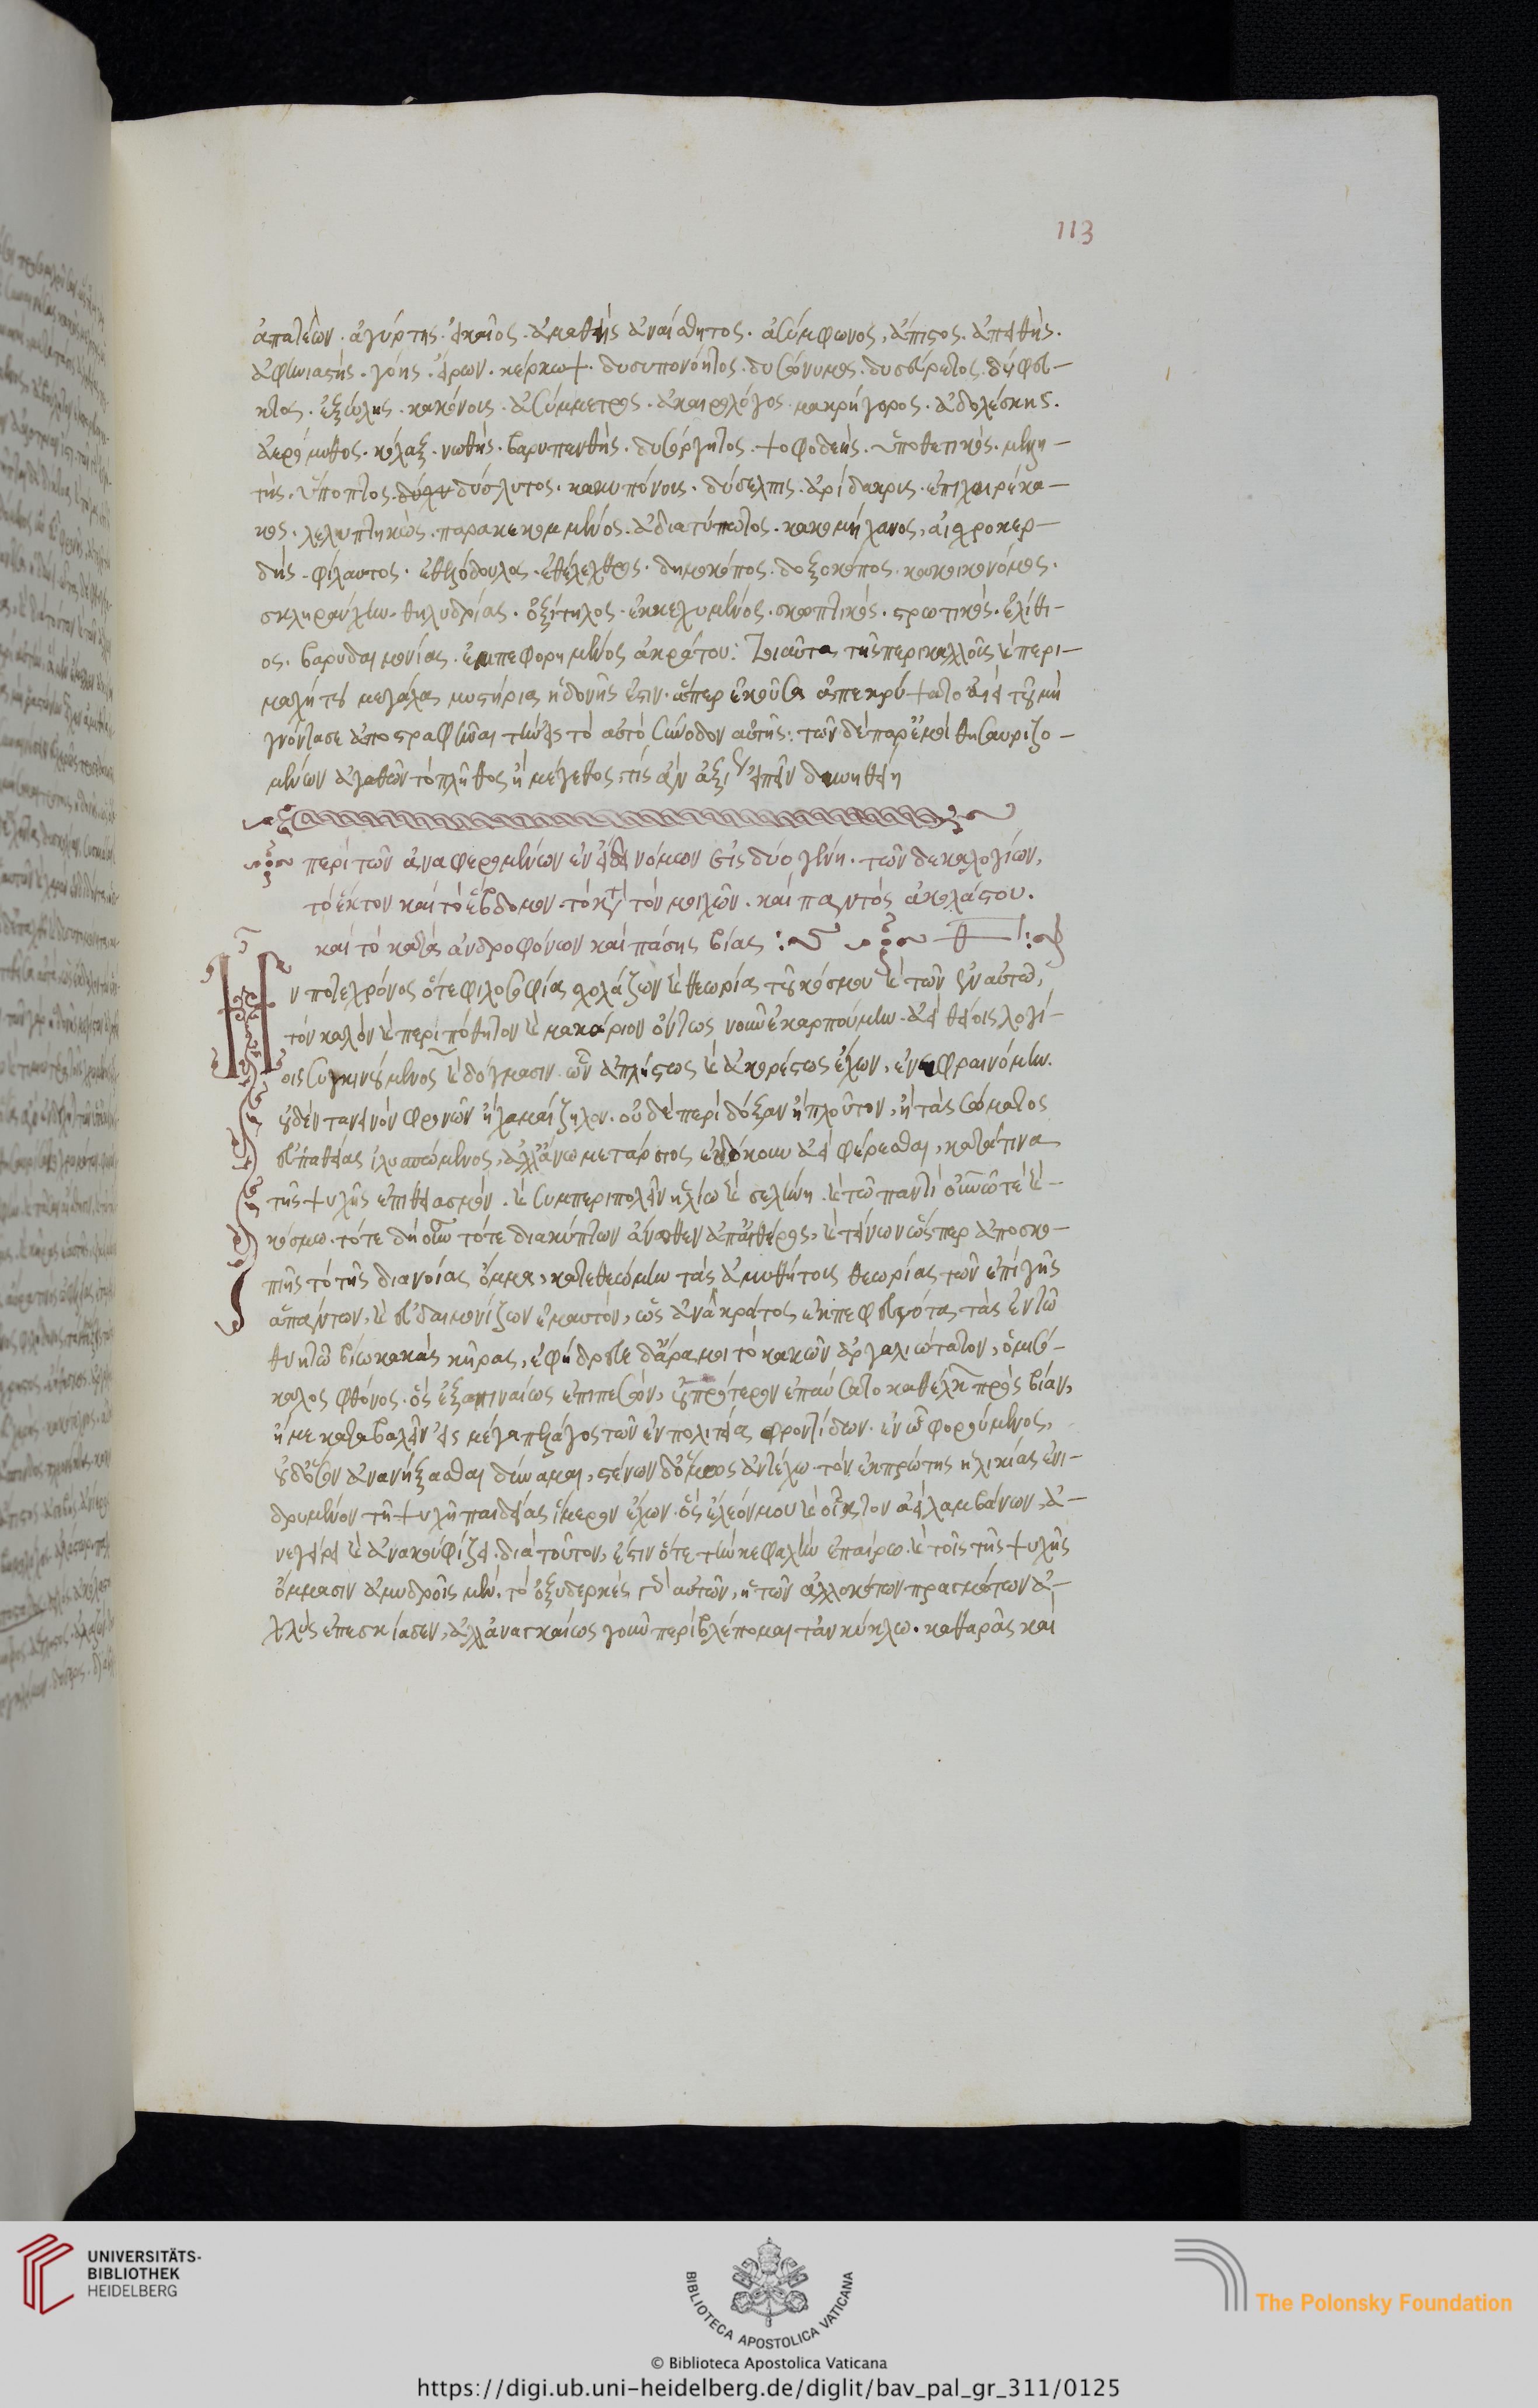 113
ἀπατεὼν. ἀγύρτης. εἰκαῖος. ἀμαθὴς ἀναίσθητος. ἀσύμφωνος, ἄπιστος. ἀπειθὴς.
ἀφηνιαστὴς. γόης. εἴρων. κέρκωψ. δυσυπονόητος. δυσώνυμος. δυσεύρετος.
ἐξώλης. κακόνοις. ἀσύμμετρος. ἀκαιρολόγος. μακρήγορος. ἀδολέσχης.
ἀερόμυθος. κόλαξ. νωθὴς. βαρυπενθὴς. δυσόργητος. ψοφοδεὴς. ὑποθετικός. μελλη-
τὴς. ὕποπτος. δύσλυτος. κακυπόνοις. δύσελπις. ἀρίδακρις. ἐπιχαιρέκα-
κος. λελυττηκὼς. παρακεκομμένος. ἀδιατύπωτος. κακομήχανος, αἰσχροκερ-
δὴς. φίλαυτος. ἐθελόδουλος. ἐθέλεχθρος. δημοκόπος. δοξοκόπος. κακοικονόμος.
σκληραύχην. θηλυδρίας. ὀξίτηλος. ἐκκεχυμένος. σκωπτικός. τρωτικός. ἠλίθι-
ος. βαρυδαιμονίας. ἐμπεφορημένος ἀκράτου: Τοιαῦτα τῆς περικαλλοῦς καὶ περι-
μαχήτου μεγάλας μυστήρια ἡδονῆς ἐστιν. ἅπερ ἑκοῦσα ἀπεκρύψατο δέει τοῦ μὴ
γνόντα σε ἀποστραφῆναι τὴν εἰς τὸ αὐτὸ σύνοδον αὐτῆς: τῶν δὲ παρ' ἐμοὶ θησαυριζο-
μένων ἀγαθῶν τὸ πλῆθος ἢ μέγεθος τίς ἂν ἀξι εἰπεῖν δυνηθείη
περὶ τῶν ἀναφερομένων ἐν εἴδει νόμων εἰς δύο γένη. τῶν δεκαλογίων,
τὸ ἕκτον καὶ τὸ ἕβδομον. τὸ κατὰ τὸν μοιχῶν. καὶ παντὸς ἀκολάστου.
καὶ τὸ κατὰ ἀνδροφόνων καὶ πάσης βίας:
Ην ποτε χρόνος ὅτε φιλοσοφίας σχολάζων καὶ θεωρίας τοῦ κόσμου καὶ τῶν ἐν αὐτῶ,
τὸν καλὸν καὶ περιπόθητον καὶ μακάριον ὄντως νοῦν ἐκαρπούμην. ἀεὶ θείοις λογί-
οις συγγινόμενος καὶ δόγμασιν. ὧν ἀπλήστως καὶ ἀκορέστως ἔχων, ἐνευφραινόμην.
οὐδὲν ταπεινὸν φρονῶν ἢ χαμαίζηλον. οὐδὲ περὶ δόξαν ἢ πλοῦτον, ἢ τὰς σώματος
εὐπαθείας ἰλυσπώμενος, ἀλλ' ἄνω μετάρσιος ἐδόκουν ἀεὶ φέρεσθαι, κατά τινα
τῆς ψυχῆς ἐπιθειασμόν. καὶ συμπεριπολεῖν ἡλίω καὶ σελήνη. καὶ τῶ παντὶ οὐρανῶ τε καὶ
κόσμω. τότε δὴ οὖν τότε διακύπτων ἄνωθεν ἀπ' αἰθέρος, καὶ τείνων ὥσπερ ἀποσκο-
πῆς τὸ τῆς διανοίας ὄμμα, κατεθεώμην τὰς ἀμυθήτους θεωρίας τῶν ἐπὶ γῆς
ἁπάντων, καὶ εὐδαιμονίζων ἐμαυτὸν, ὡς ἀνὰ κράτος ἐκπεφευγότα τὰς ἐν τῶ
θνητῶ βίω κακὰς κῆρας, ἐφήδρευε δ' ἄρα μοι τὸ κακῶν ἀργαλεώτατον, ὁ μισό-
καλος φθόνος. ὃς ἐξαπιναίως ἐπιπεσὼν, οὐ πρότερον ἐπαύσατο καθέλκων πρὸς βίαν,
ἤ με καταβαλεῖν εἰς μέγα πέλαγος τῶν ἐν πολιτείας φροντίδων. ἐν ὧ φορούμενος,
οὐδ' ὅσον ἀνανήξασθαι δύναμαι, στένων δ' ὅμως ἀντέχω. τὸν ἐκ πρώτης ἡλικίας ἐνι-
δρυμένον τῆ ψυχῆ παιδείας ἵμερον ἔχων. ὃς ἔλεόν μου καὶ οἶκτον ἀεὶ λαμβάνων, ἀ-
νεγείρει καὶ ἀνακουφίζει. διὰ τοῦτον, ἔστιν ὅτε τὴν κεφαλὴν ἐπαίρω. καὶ τοῖς τῆς ψυχῆς
ὄμμασιν ἀμυδροῖς μὲν. τὸ ὀξυδερκὲς γὰρ αὐτῶν, ἡ τῶν ἀλλοκότων πραγμάτων ἀ-
χλὺς ἐπεσκίασεν, ἀλλ' ἀναγκαίως γοῦν περιβλέπομαι τἀν κύκλω. καθαρᾶς καὶ
UNIVERSITÄTS-
BIBLIOTHEK
HEIDELBERG
BIBLIOTECA APOSTOLICA VATICANA
The Polonsky Foundation
© Biblioteca Apostolica Vaticana
https://digi.ub.uni-heidelberg.de/diglit/bav_pal_gr_311/0125